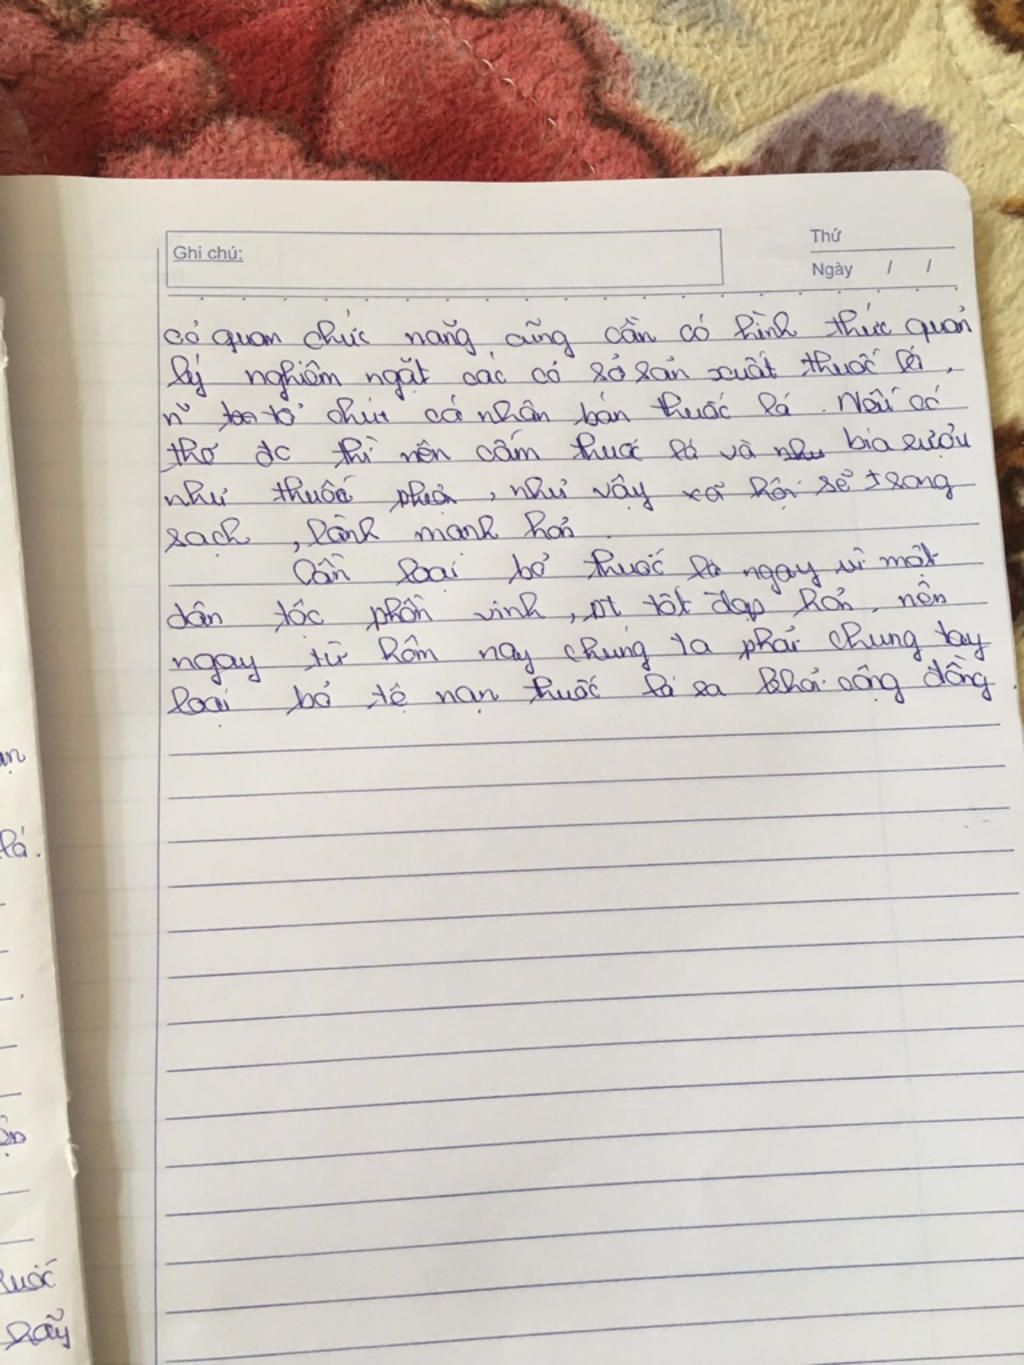 Ghi chú:
Thứ
Ngày / /
cơ quan chức năng cũng cần có hình thức quản
lý nghiêm ngặt các cơ sở sản xuất thuốc lá,
tổ chức cá nhân bán thuốc lá. Nếu có
thể đc thì nên cấm thuốc lá và bia rượu
như thuốc phiện, như vậy xã hội sẽ trong
sạch, lành mạnh hơn.
Cần loại bỏ thuốc lá ngay vì một
dân tộc phồn vinh, pt tốt đẹp hơn, nên
ngay từ hôm nay chúng ta phải chung tay
loại bỏ tệ nạn thuốc lá ra khỏi cộng đồng.
lá.